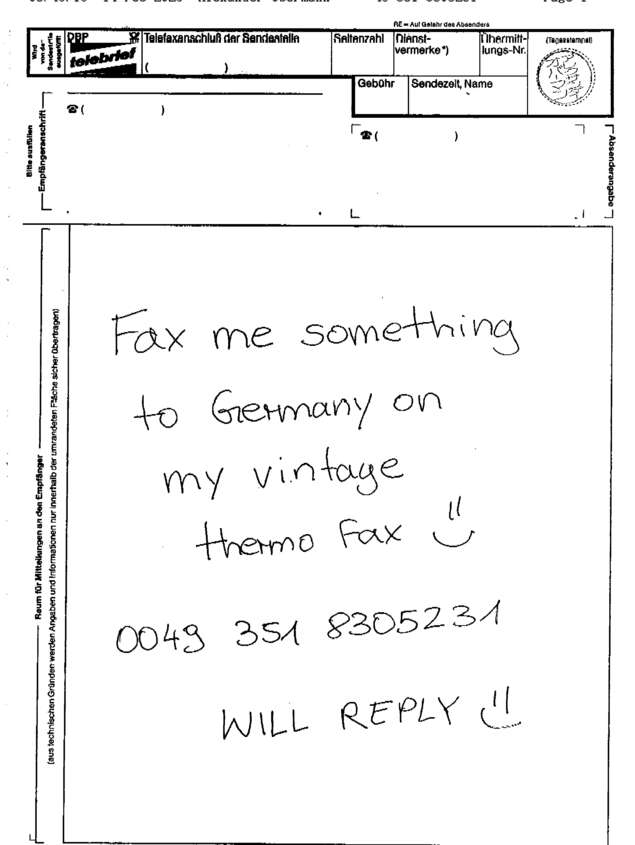 RE = Auf Gefahr des Absenders
Wird von der Sendestelle ausgefüllt
DBP
telebrief
Telefaxanschluß der Sendestelle
( )
Seitenzahl
Dienst-
vermerke*)
Übermitt-
lungs-Nr.
(Tagesstempel)
Gebühr
Sendezeit, Name
Bitte ausfüllen
Empfängeranschrift
☎ ( )
☎ ( )
Absenderangabe
Raum für Mitteilungen an den Empfänger
(aus technischen Gründen werden Angaben und Informationen nur innerhalb der umrandeten Fläche sicher übertragen)
Fax me something
to Germany on
my vintage
thermo Fax
0049 351 8305231
WILL REPLY